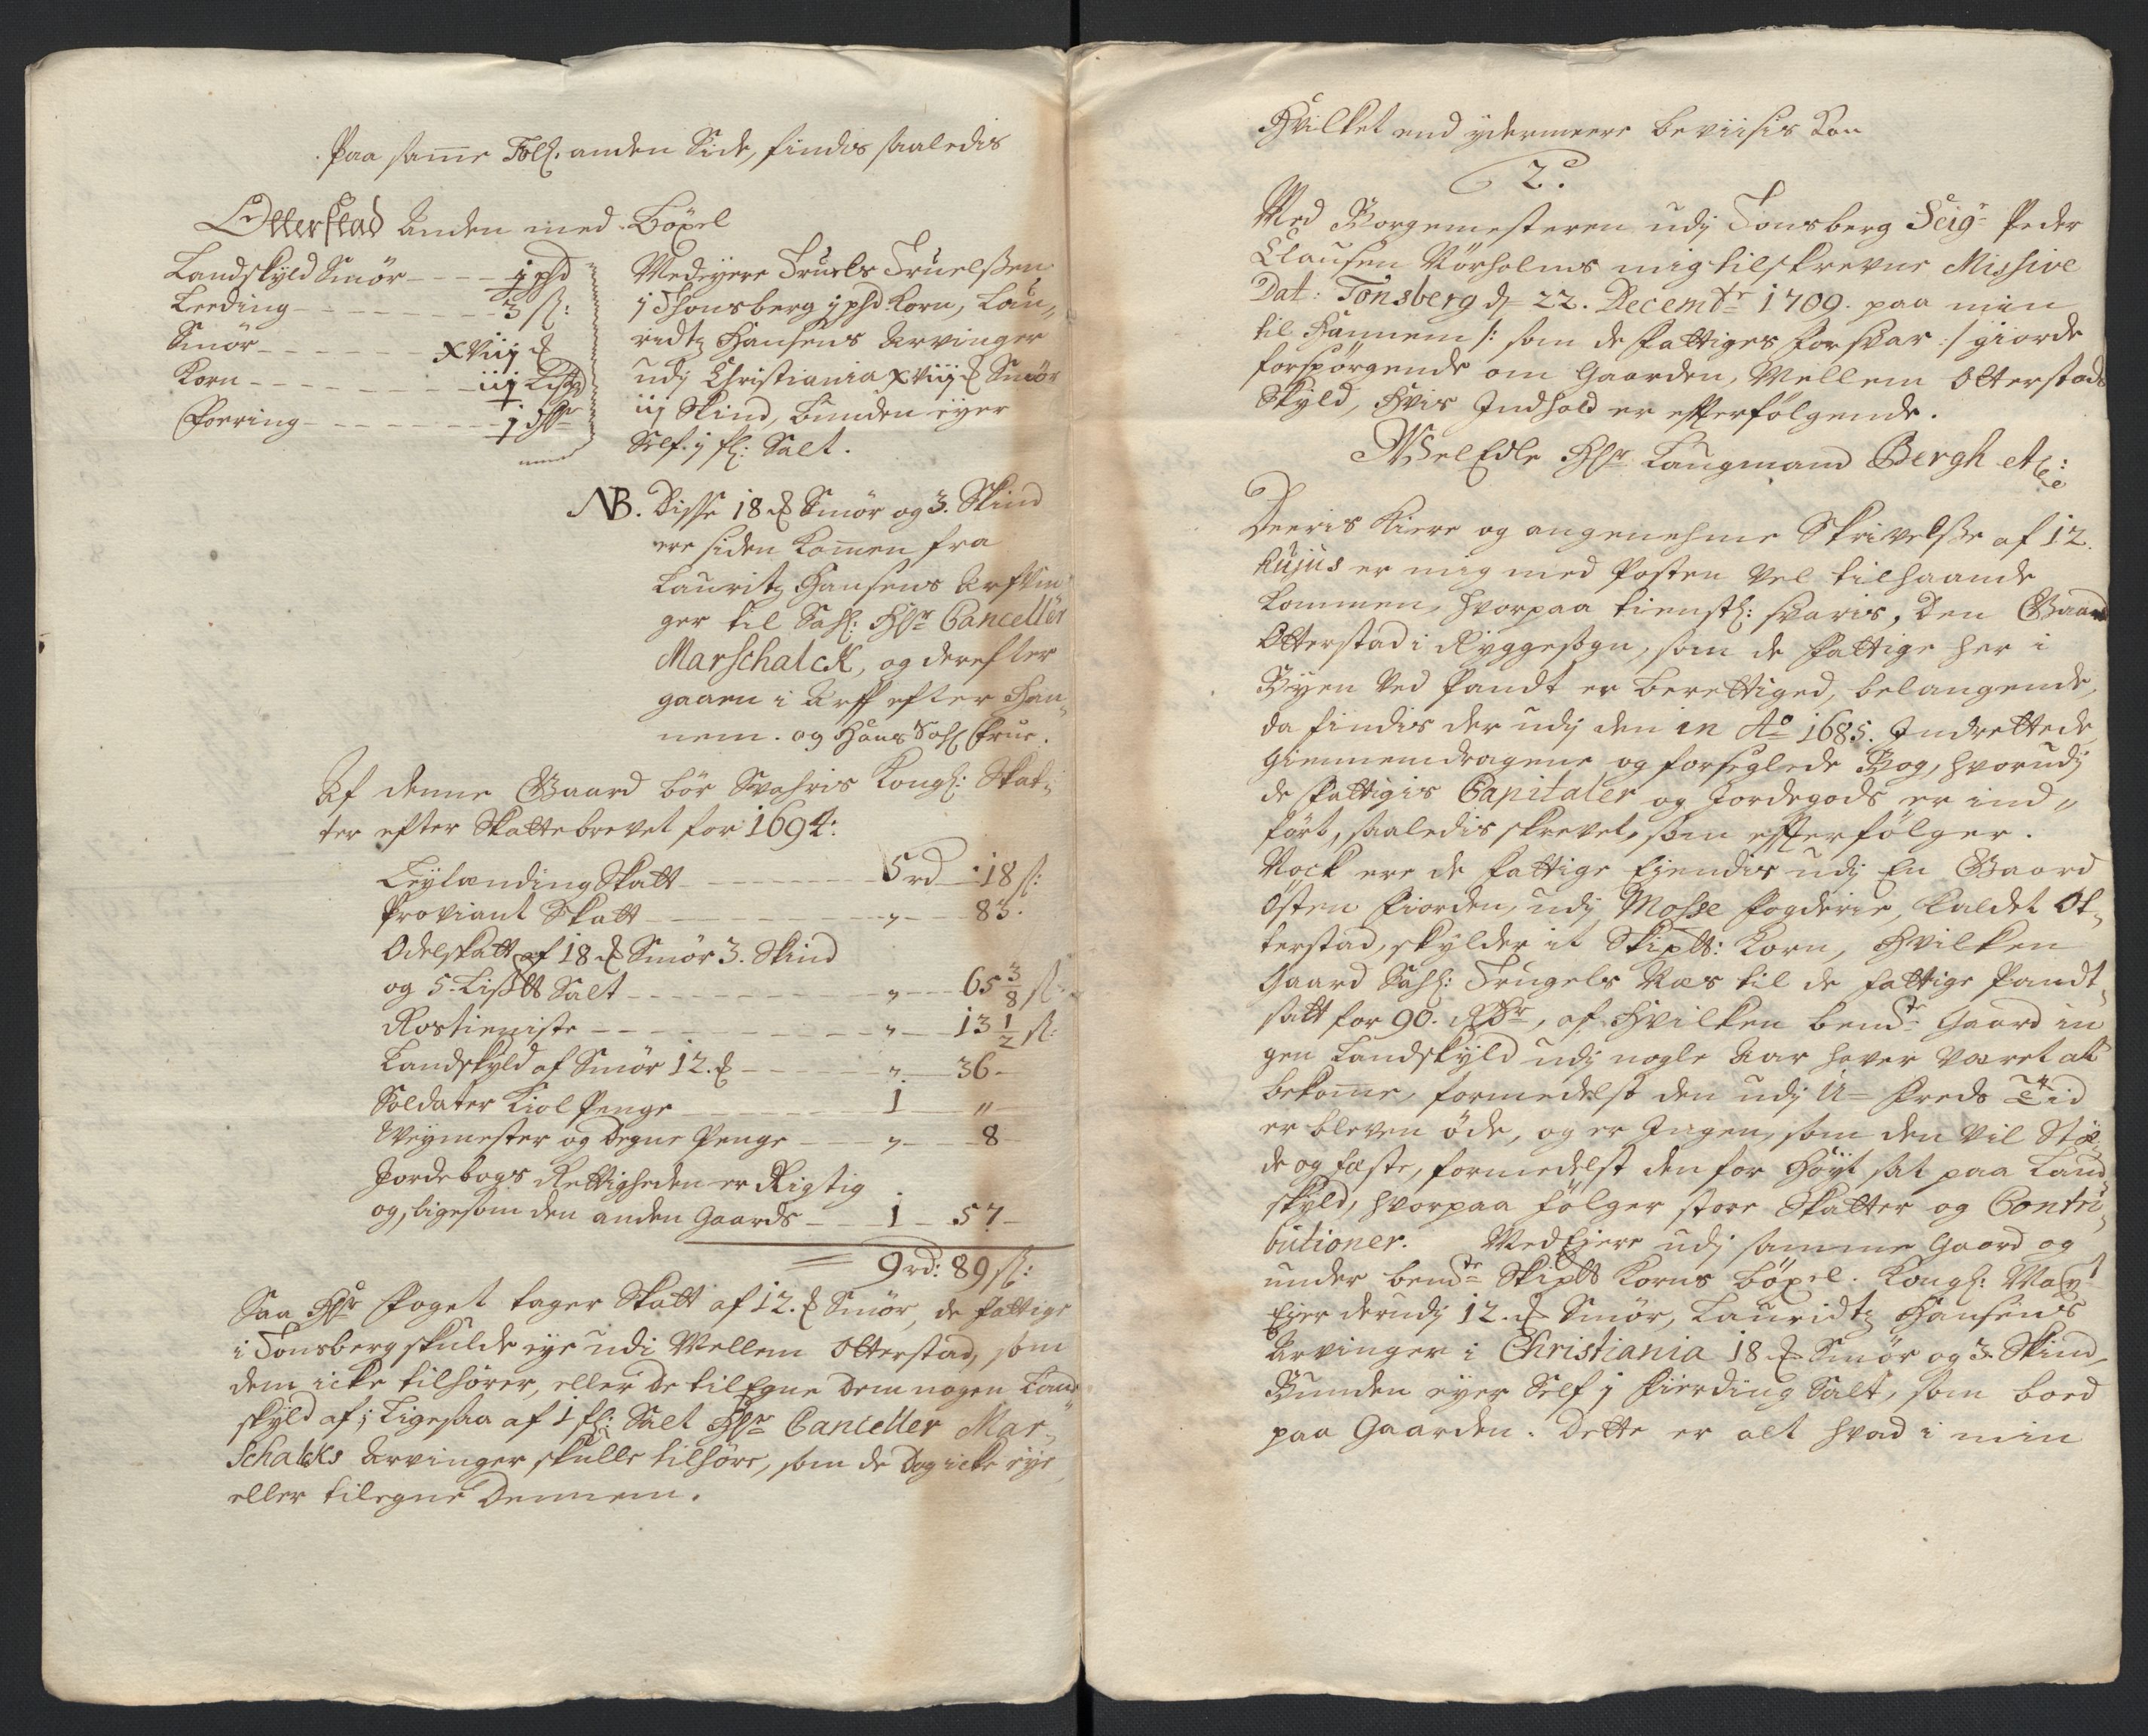 Paa samme Foll: anden Side, findis saaledis
Otterstad Anden med Böxel
Landskyld Smör j phd
Leeding 3 s:
Smör xviij
Korn iij
Foering j
Medeyere Truels Truelssen
j Thonsberg j phd Korn, Lau„
ridtz Hansens Arvinger
udj Christiania xviij Smör
iij Skind, bunden eyer
Self j fl: Salt.
NB. Disse 18 Smör og 3. Skind
ere siden kommen fra
Lauritz Hansens Arfvin
ger til Sahl: Hr Canceller
Marschalck, og derefter
gaaen i Arff efter Han„
nem. og Hans Sahl Frue.
Af denne Gaard bör Svahris Kongl: Skat„
ter efter Skattebrevet for 1694:
Leylænding Skatt 5 rd 18 s:
Proviant Skatt „ 83.
Odelskatt af 18 Smör 3. Skind
og 5. Lis Salt „ 65 3/8 s:
Rostienniste „ 13 1/2 s:
Landskyld af Smör 12. „ 36
Soldater Kiol Penge 1 „
Veymester og Degne Penge „ 8
Jordebogs Rettigheden er Rigtig
og, ligesom den anden Gaards 1 57
9 rd: 89 s:
Saa Hr Foget tager Skatt af 12. Smör, de fattige
i Tonsberg skulde eye udi Mellem Otterstad, som
dem icke tilhörer, eller de tilEgne dem nogen Land„
skyld af; Ligesaa af 1 fl: Salt Hr Canceller Mar„
schalcks Arvinger skulle tilhöre, som de dog icke eye
eller tilegne Dennem.
Hvilket end ydermeere beviisis kan
2:
Med Borgemesteren udj Tonsberg Seigr Peder
Clausen Nörholms mig tilskrevne Missive
Dat: Tönsberg d 22. Decembr 1709. paa min
til Hannem /: som de fattiges forsvar :/ giorde
forspörgende om Gaarden, Mellem Otterstads
Skyld, Hvis Indhold er efterfölgende.
WelEdle Hr Laugmand Bergh etc:
Deeris kiere og angenehme Skrivelsse af 12.
hujus er mig med Posten vel tilhaande
kommen, hvorpaa tienstl: svaris, den Gaard
Otterstad i Ryggesogn, som de fattige her i
Byen ved Pandt er berettiged, belangende,
da findis der udj den in Ao 1685. Indrettede
giennemdragene og forseglede Bog, hvorudj
de fattigis Capitaler og Jordegods er ind„
fört, saaledis skrevet, som efterfölger.
Nock ere de fattige Ejendis udj En Gaard
Östen Fiorden, udj Mosse fogderie, kaldet Ot„
terstad, skylder it Skip: Korn, hvilken
Gaard Sahl: Trugels Næs til de fattige Pandt„
satt for 90. Rdr, af hvilken bemte Gaard in
gen Landskyld udj nogle Aar haver været at
bekomme, formedelst den udj U= freds Tid
er bleven öde, og er Ingen, som den vil Stæ„
de og fæste, formedelst den for Höyt sat paa Land„
skyld, hvorpaa fölger store Skatter og Contri„
butioner. MedEjere udj samme Gaard og
under bemte Skip Korns böxel. Kongl: Mayt
Ejer derudj 12. Smör, Lauridtz Hansens
Arvinger i Christiania 18 Smör og 3. Skind,
Bunden eyer Self j fierding Salt, som boed
paa Gaarden. Dette er alt hvad i min